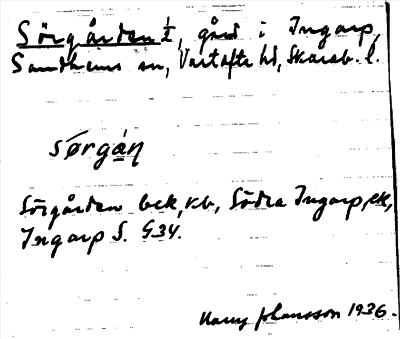 Sörgården 1/2, gård i Ingarp,
Sandhems sn, Vartofta hd, Skarab. l.
sørgán
Sörgården bek, kb, Södra Ingarp, ek,
Ingarp S. G34.
Harry Johansson 1936.